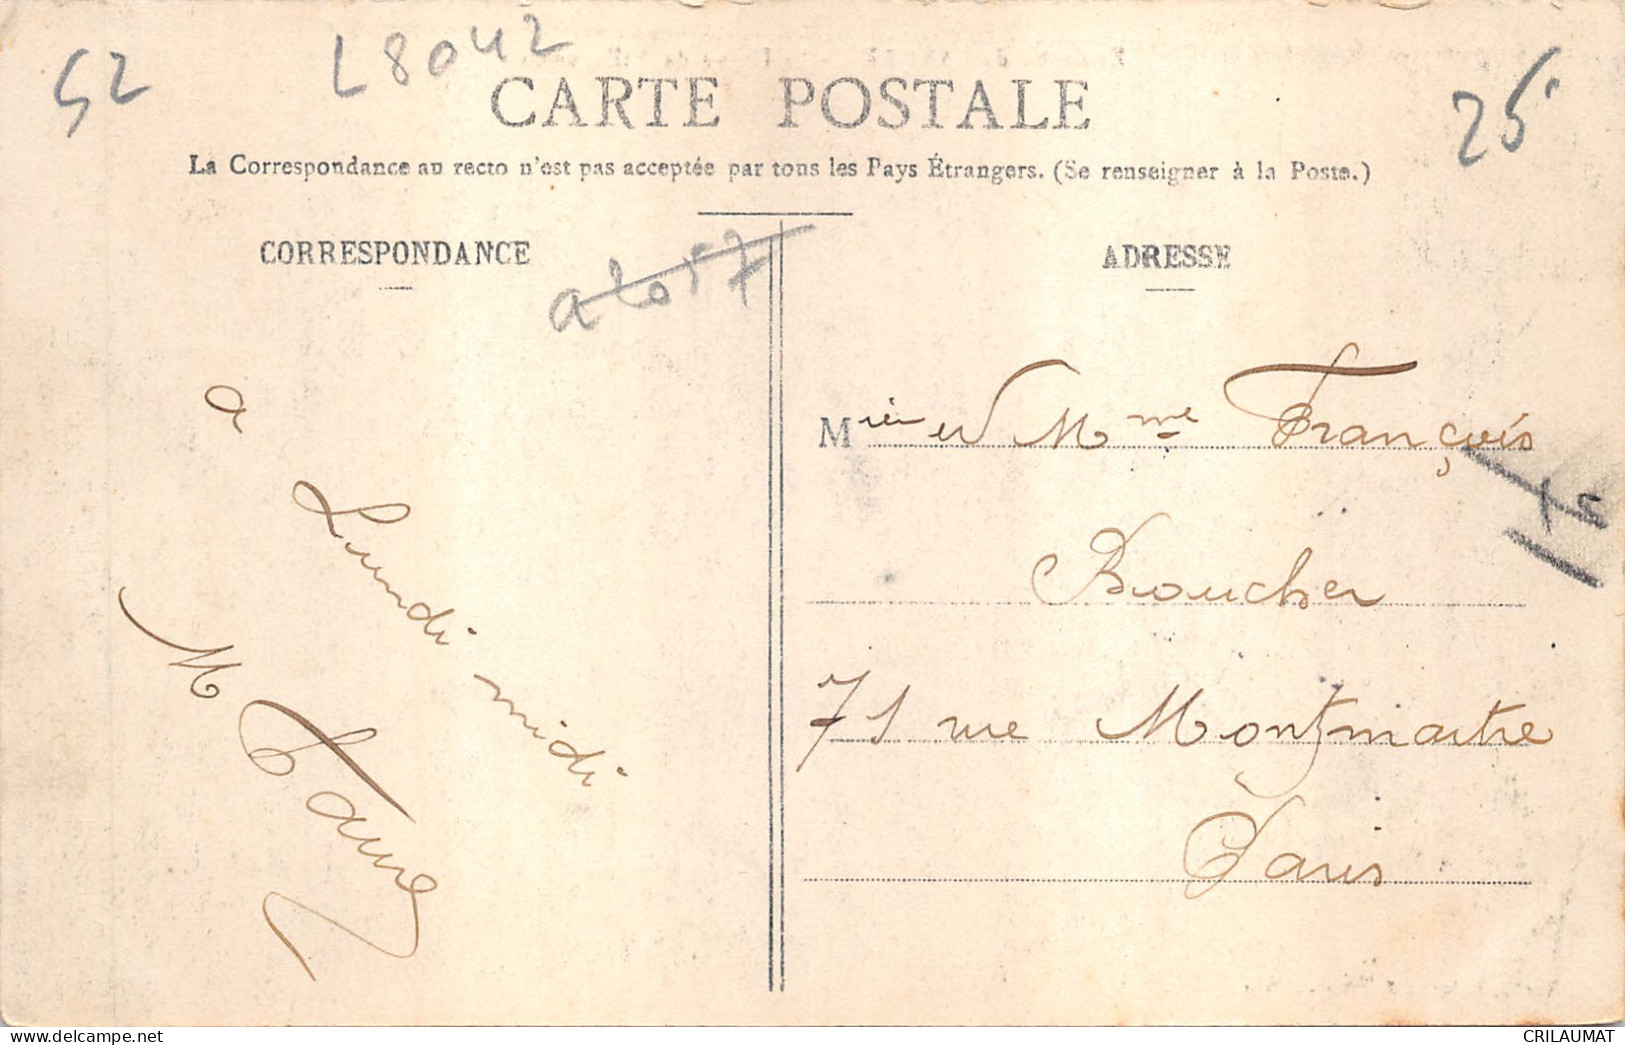 52
L8042
25
CARTE POSTALE
La Correspondance au recto n'est pas acceptée par tous les Pays Étrangers. (Se renseigner à la Poste.)
CORRESPONDANCE
ADRESSE
a
Lundi midi
M Faure
M et Mme François
Boucher
71 rue Montmartre
Paris
www.delcampe.net
CRILAUMAT